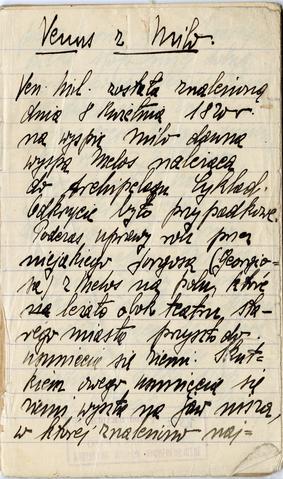 Venus z Milo.
Ven. Mil. została znalezioną
dnia 8 kwietnia 1820 r.
na wyspie Milo dawna
wyspa Melos należąca
do Archipelagu Cyklad.
Odkrycie było przypadkowe.
Podczas uprawy roli przez
niejakiego Jorgosa (Georgio-
sa) z Melos na polu, które
leżało obok teatru, sta-
rego miasta przyszło do
usunięcia się ziemi. Skut-
kiem owego usunięcia się
ziemi wyszła na jaw nisza,
w której znaleziono naj-